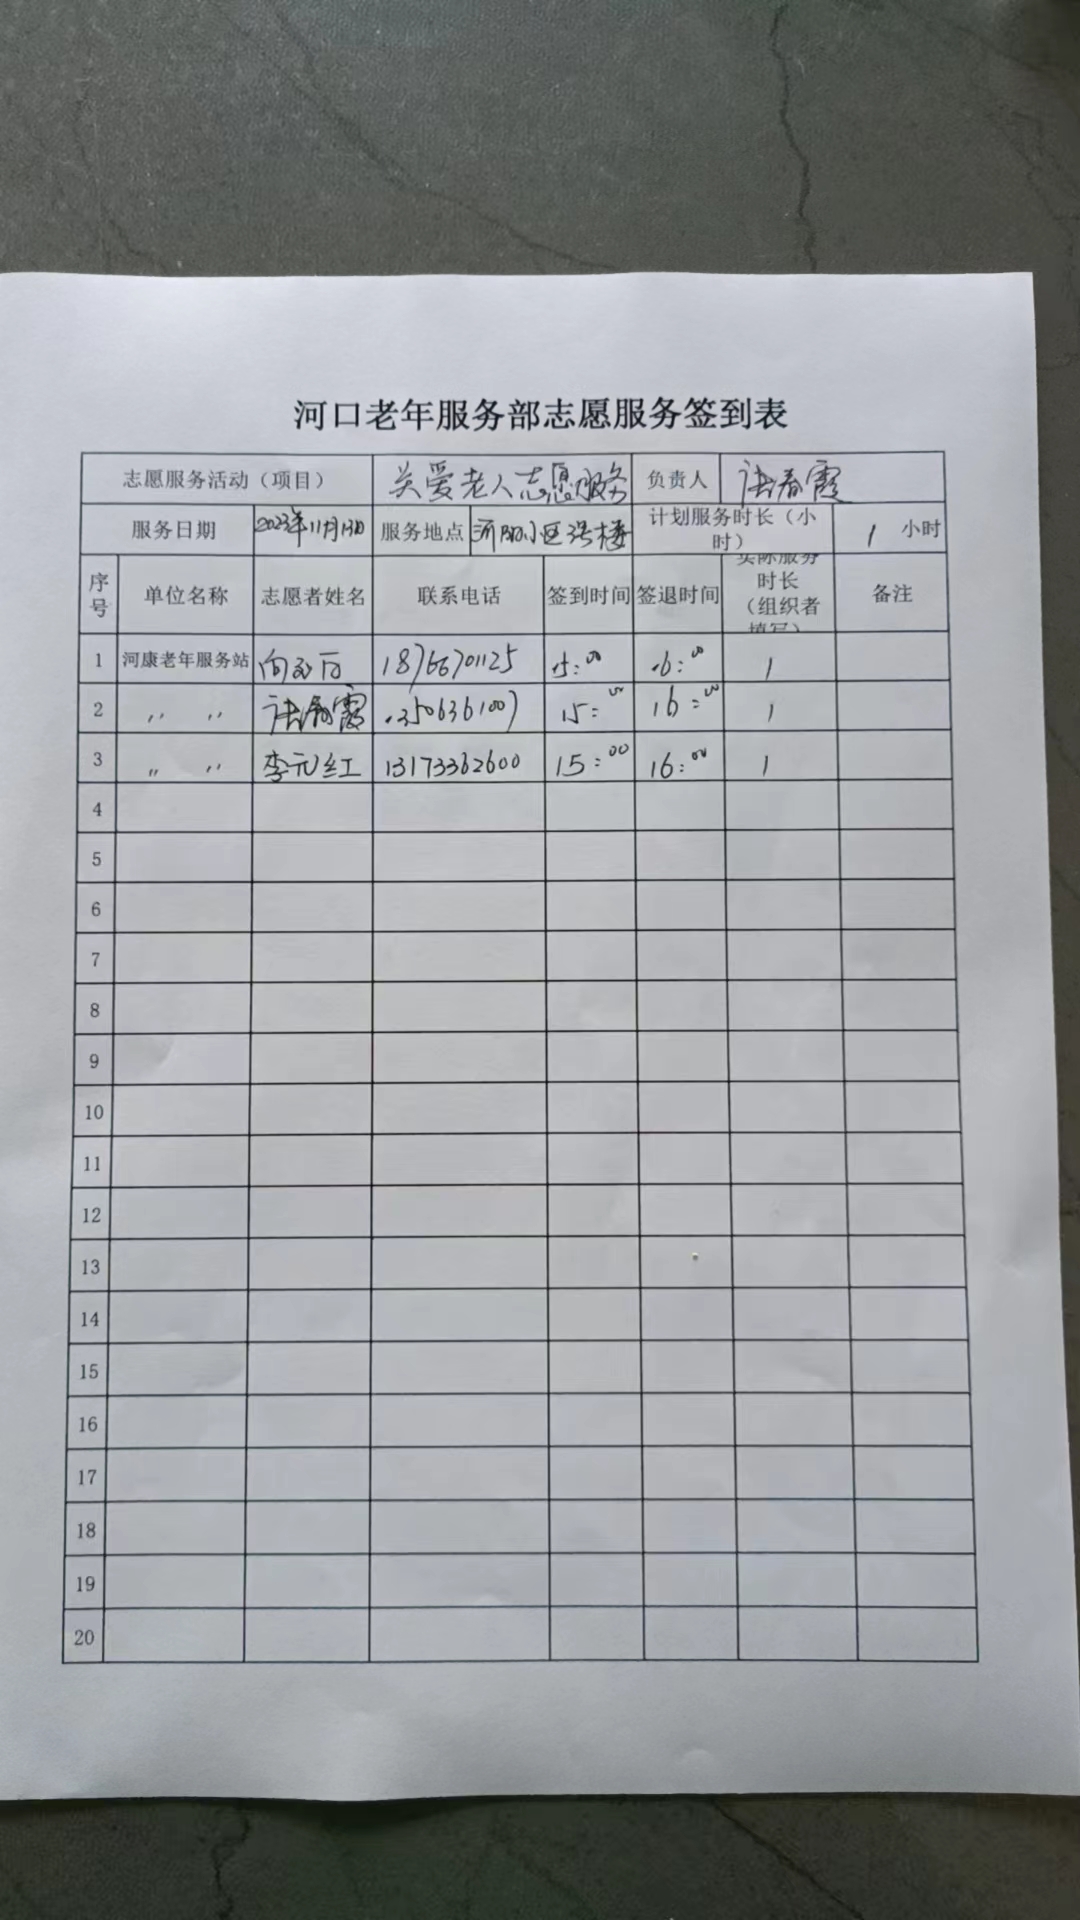 河口老年服务部志愿服务签到表
志愿服务活动（项目） 关爱老人志愿服务 负责人 张春霞
服务日期 2023年11月13日 服务地点 小区 号楼 计划服务时长（小时） 1 小时
序号 单位名称 志愿者姓名 联系电话 签到时间 签退时间 实际服务时长（组织者填写） 备注
1 河康老年服务站 18766701125 15:00 16:00 1
2 〃 〃 张春霞 13506361007 15:00 16:00 1
3 〃 〃 李元红 13173362600 15:00 16:00 1
4
5
6
7
8
9
10
11
12
13
14
15
16
17
18
19
20